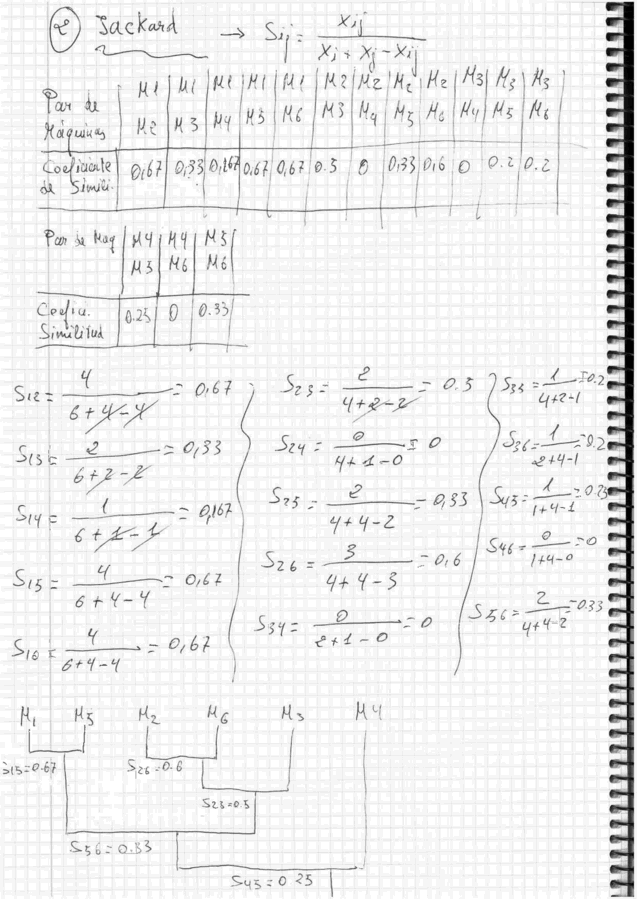 2 Jackard → Sij = Xij / Xi + Xj - Xij
Par de Máquinas | M1 M2 | M1 M3 | M1 M4 | M1 M5 | M1 M6 | M2 M3 | M2 M4 | M2 M5 | M2 M6 | M3 M4 | M3 M5 | M3 M6
Coeficiente de Simili. | 0,67 | 0,33 | 0,167 | 0,67 | 0,67 | 0.5 | 0 | 0,33 | 0,6 | 0 | 0.2 | 0.2
Par de Maq | M4 M5 | M4 M6 | M5 M6
Coefic. Similitud | 0.25 | 0 | 0.33
S12 = 4 / 6+4-4 = 0,67
S13 = 2 / 6+2-2 = 0,33
S14 = 1 / 6+1-1 = 0,167
S15 = 4 / 6+4-4 = 0,67
S16 = 4 / 6+4-4 = 0,67
S23 = 2 / 4+2-2 = 0.5
S24 = 0 / 4+1-0 = 0
S25 = 2 / 4+4-2 = 0,33
S26 = 3 / 4+4-3 = 0,6
S34 = 0 / 2+1-0 = 0
S35 = 1 / 4+2-1 = 0.2
S36 = 1 / 2+4-1 = 0.2
S45 = 1 / 1+4-1 = 0.25
S46 = 0 / 1+4-0 = 0
S56 = 2 / 4+4-2 = 0.33
M1 M5 M2 M6 M3 M4
S15=0.67 S26=0.6
S23=0.5
S56=0.33
S45=0.25